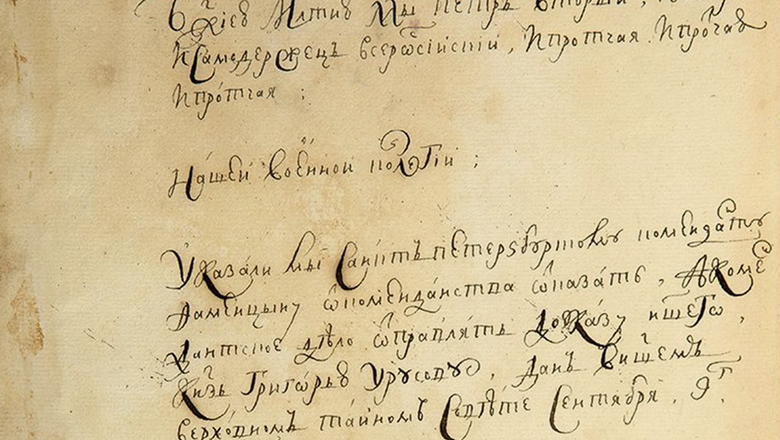 Бжиею Млтию Мы Петръ Вторый,
И Самодержецъ Всеросiискiй, И протчая И протчая
И протчая :
Нашей Военной колегiи ;
Указали мы Санктъпетерзбурскому коменданту
Фаминцыну ѿ комендантства ѿказать, А коме
дантское дѣло ѿправлять до указу нашего,
Кнзь Григорью Урусову, Данъ В нашемъ
верховномъ тайномъ Совѣте Сентября. 9г.